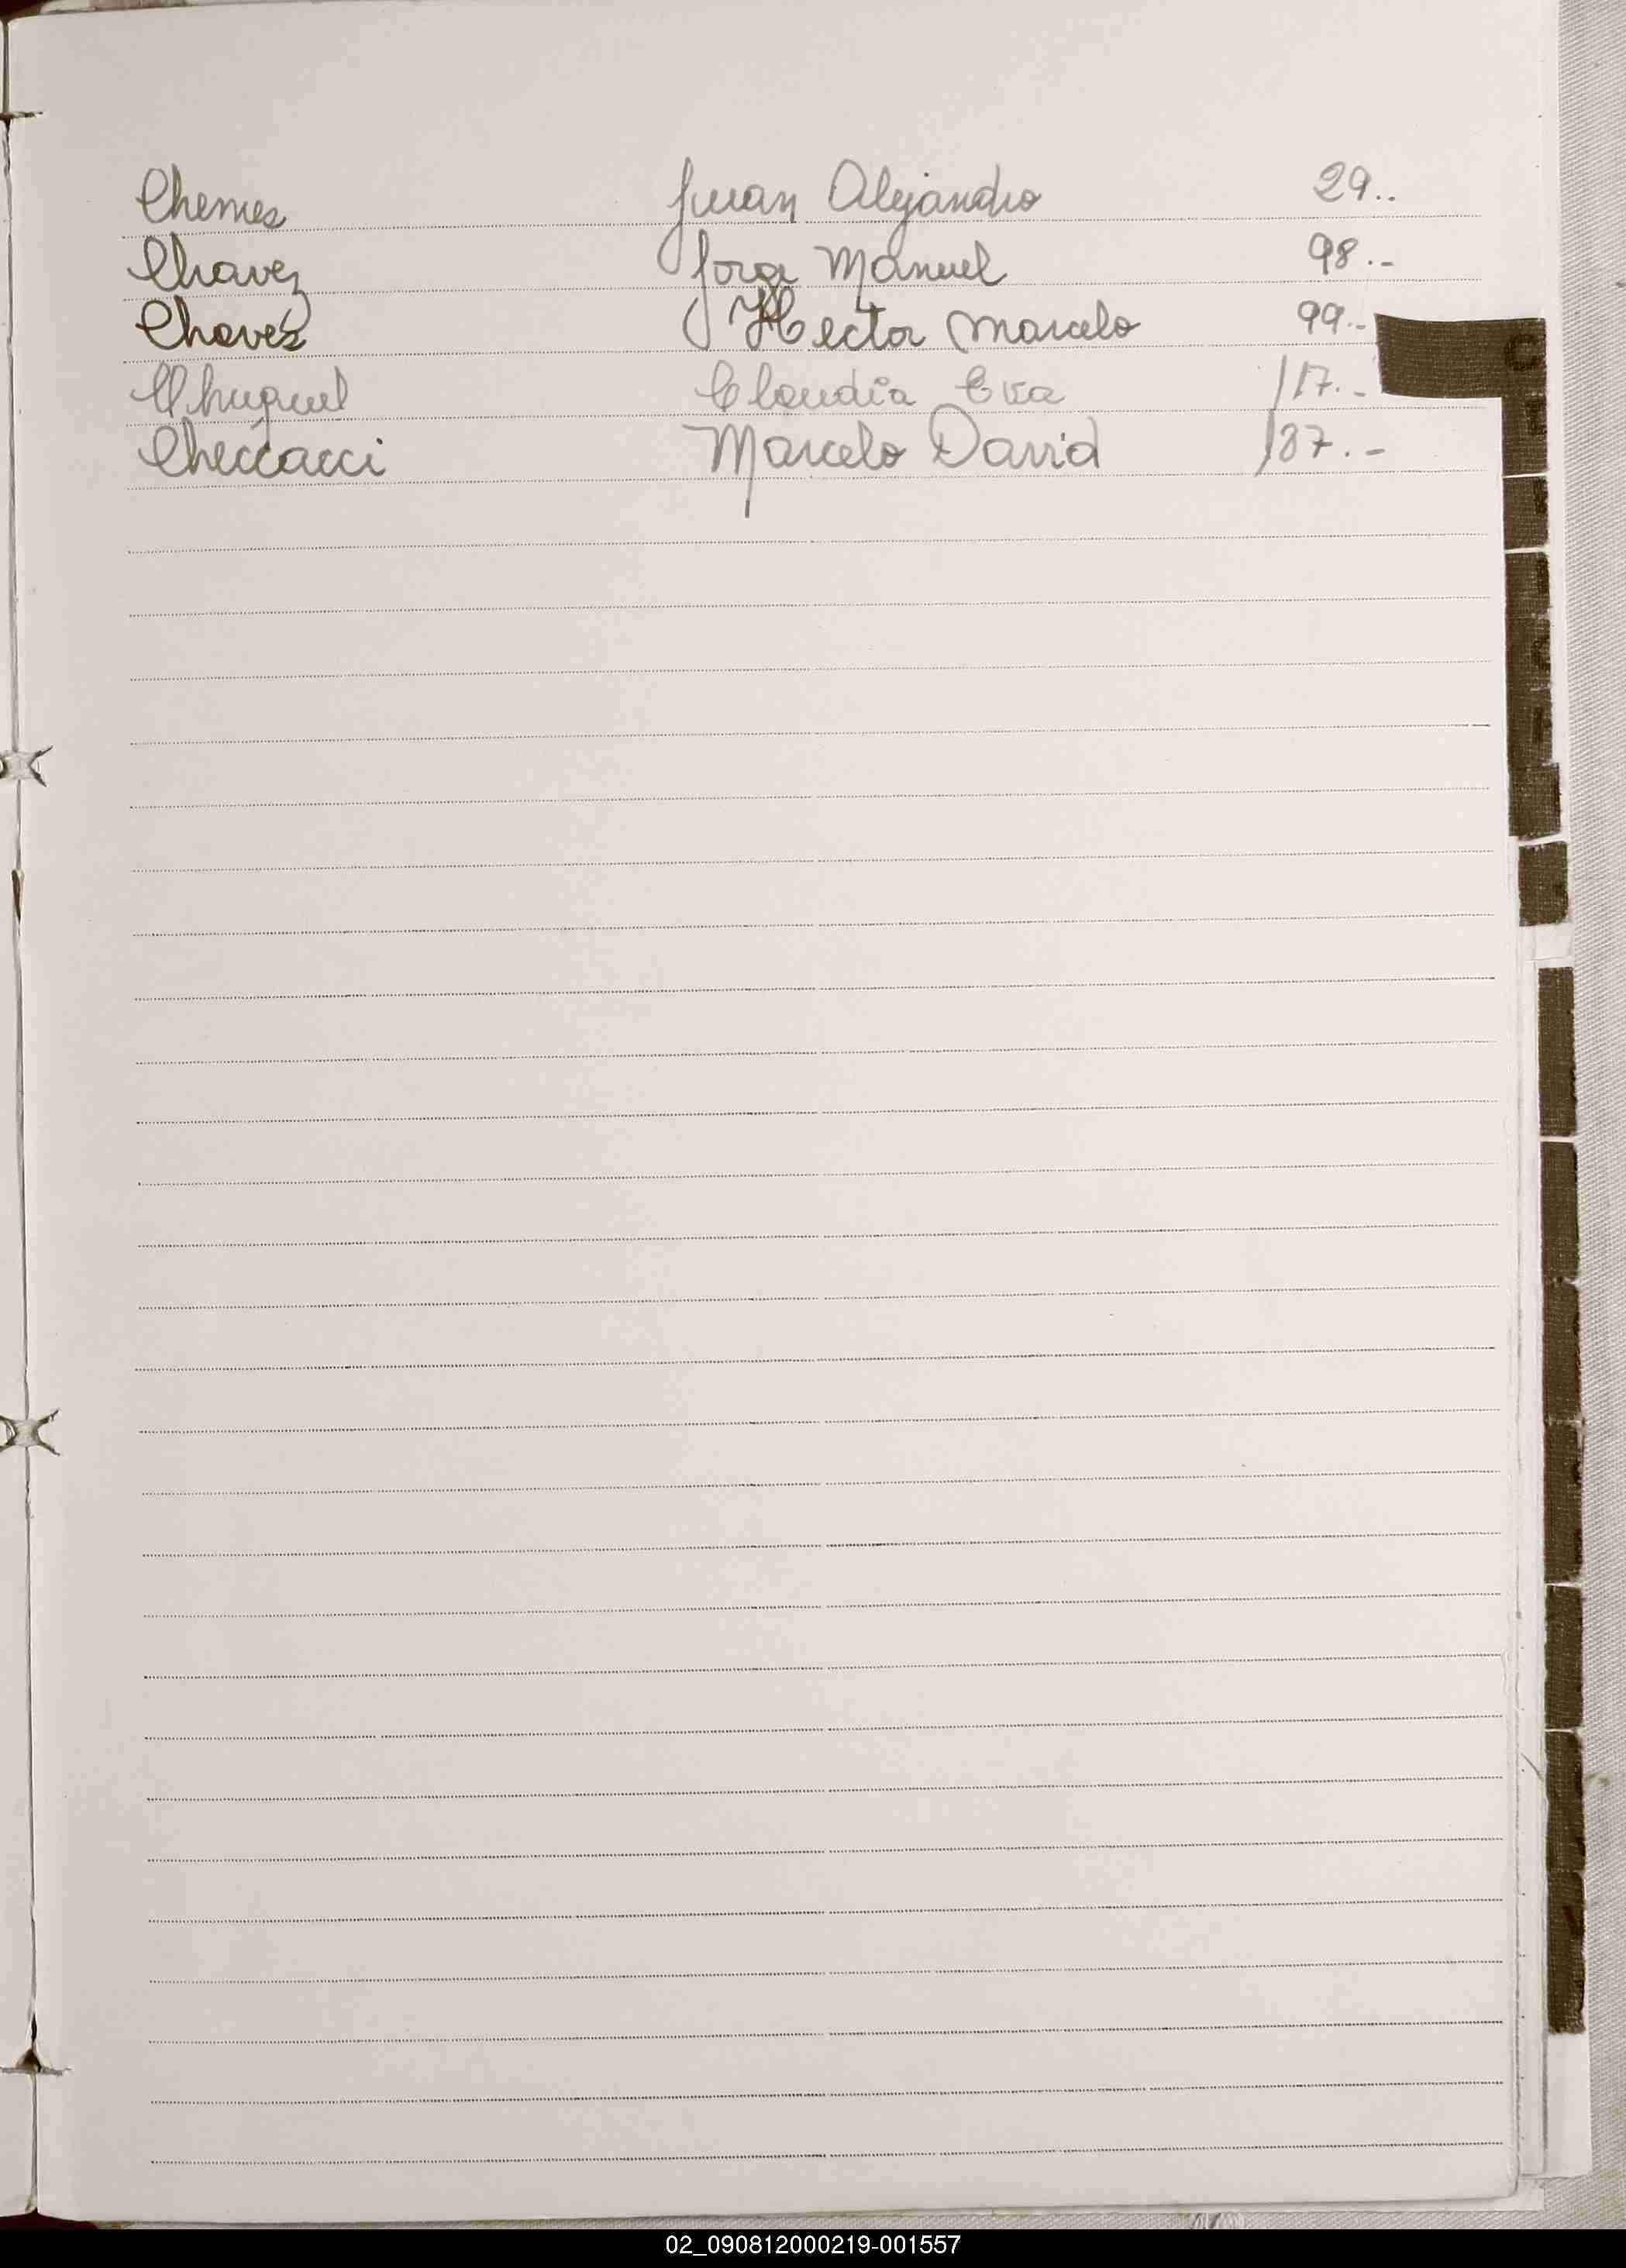 Chemes Juan Alejandro 29..
Chavez Jorge Manuel 98.-
Chavez Hector Marcelo 99.-
Chuguel Claudia Eva 117.-
Checcacci Marcelo David 187.-
C
02_090812000219-001557